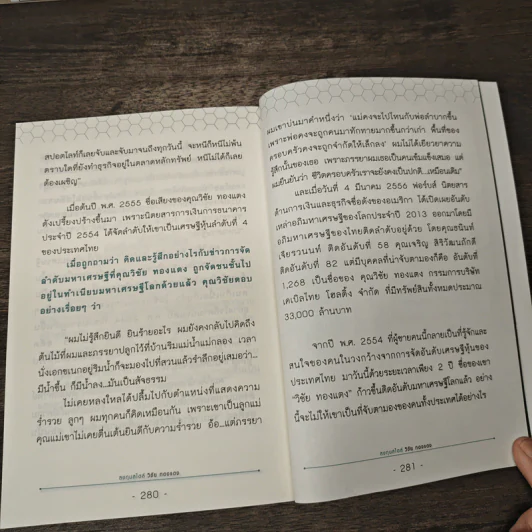 สปอตไลท์ก็เลยจับและจับมาจนถึงทุกวันนี้ จะหนีก็หนีไม่พ้น
ตราบใดที่ยังทำธุรกิจอยู่ในตลาดหลักทรัพย์ หนีไม่ได้ก็เลย
ต้องเผชิญ"
เมื่อต้นปี พ.ศ. 2555 ชื่อเสียงของคุณวิชัย ทองแตง
ดังเปรี้ยงปร้างขึ้นมา เพราะนิตยสารการเงินการธนาคาร
ประจำปี 2554 ได้จัดลำดับให้เขาเป็นเศรษฐีหุ้นลำดับที่ 4
ของประเทศไทย
เมื่อถูกถามว่า คิดและรู้สึกอย่างไรกับข่าวการจัด
ลำดับมหาเศรษฐีที่คุณวิชัย ทองแตง ถูกจัดชนชั้นไป
อยู่ในทำเนียบมหาเศรษฐีโลกด้วยแล้ว คุณวิชัยตอบ
อย่างเรื่อยๆ ว่า
"ผมไม่รู้สึกยินดี ยินร้ายอะไร ผมยังคงกลับไปคิดถึง
ต้นไม้ที่ผมและภรรยาปลูกไว้ที่บ้านริมแม่น้ำแม่กลอง เวลา
นั่งเอกเขนกอยู่ริมน้ำก็จะมองไปที่สวนแล้วรำลึกอยู่เสมอว่า...
มีน้ำขึ้น ก็มีน้ำลง...มันเป็นสัจธรรม
ไม่เคยหลงใหลได้ปลื้มไปกับตำแหน่งที่แสดงความ
ร่ำรวย ลูกๆ ผมทุกคนก็คิดเหมือนกัน เพราะเขาเป็นลูกแม่
คุณแม่เขาไม่เคยตื่นเต้นยินดีกับความร่ำรวย อ้อ...แต่ภรรยา
ชงกุมสไตล์ วิชัย ทองแตง
- 280 -
ผมเขาบ่นมาคำหนึ่งว่า 'แม่คงจะไปไหนกับพ่อลำบากขึ้น
เพราะพ่อคงจะถูกคนมาทักทายมากขึ้นกว่าเก่า พื้นที่ของ
ครอบครัวคงจะถูกจำกัดให้เล็กลง' ผมไม่ได้เยียวยาความ
รู้สึกนั้นของเธอ เพราะภรรยาผมเธอเป็นคนเข้มแข็งเสมอ แต่
ผมยืนยันว่า ชีวิตครอบครัวเราจะยังคงเป็นปกติ...เหมือนเดิม"
และเมื่อวันที่ 4 มีนาคม 2556 ฟอร์บส์ นิตยสาร
ด้านการเงินและธุรกิจชื่อดังของอเมริกา ได้เปิดเผยอันดับ
เหล่าอภิมหาเศรษฐีของโลกประจำปี 2013 ออกมาโดยมี
อภิมหาเศรษฐีของไทยติดลำดับอยู่ด้วย โดยคุณธนินท์
เจียรวานนท์ ติดอันดับที่ 58 คุณเจริญ สิริวัฒนภักดี
ติดอันดับที่ 82 แต่มีบุคคลที่น่าจับตามองก็คือ อันดับที่
1,268 เป็นชื่อของ คุณวิชัย ทองแตง กรรมการบริษัท
เคเบิลไทย โฮลดิ้ง จำกัด ที่มีทรัพย์สินทั้งหมดประมาณ
33,000 ล้านบาท
จากปี พ.ศ. 2554 ที่ผู้ชายคนนี้กลายเป็นที่รู้จักและ
สนใจของคนในวงกว้างจากการจัดอันดับเศรษฐีหุ้นของ
ประเทศไทย มาวันนี้ด้วยระยะเวลาเพียง 2 ปี ชื่อของเขา
"วิชัย ทองแตง" ก้าวขึ้นติดอันดับมหาเศรษฐีโลกแล้ว อย่าง
นี้จะไม่ให้เขาเป็นที่จับตามองของคนทั้งประเทศได้อย่างไร
วิชัย ทองแตง
- 281 -